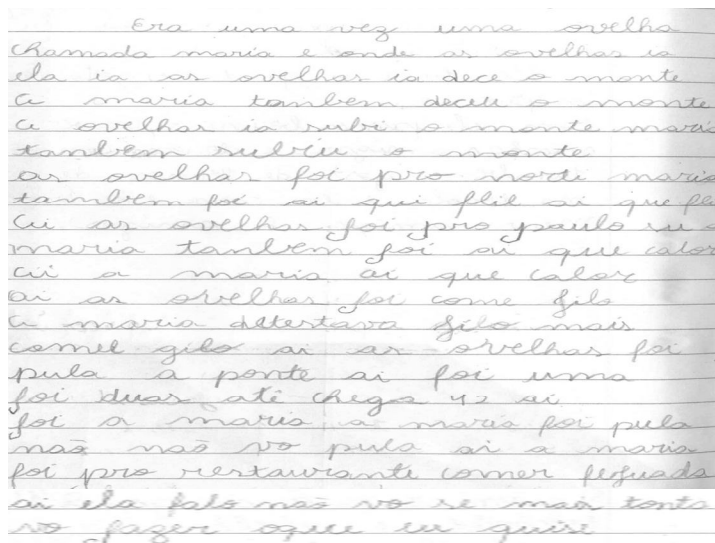 Era uma vez uma ovelha
chamada maria e onde as ovelhas ia
ela ia as ovelhas ia dece o monte
a maria tanbem deceu o monte
a ovelhas ia subi o monte maria
tanbem subiu o monte
as ovelhas foi pro norti maria
tanbem foi ai qui fliu ai que
ai as ovelhas foi pro paulo su
maria tanbem foi ai que calor
ai a maria ai que calor
ai as ovelhas foi come jilo
a maria detestava jilo mais
comeu gilo ai as ovelhas foi
pula a ponte ai foi uma
foi duas até chega 42 ai
foi a maria a maria foi pula
naõ naõ vo pula ai a maria
foi pro restaurante comer
ai ela falo naõ vo se mais tonta
vo fazer oque eu quise